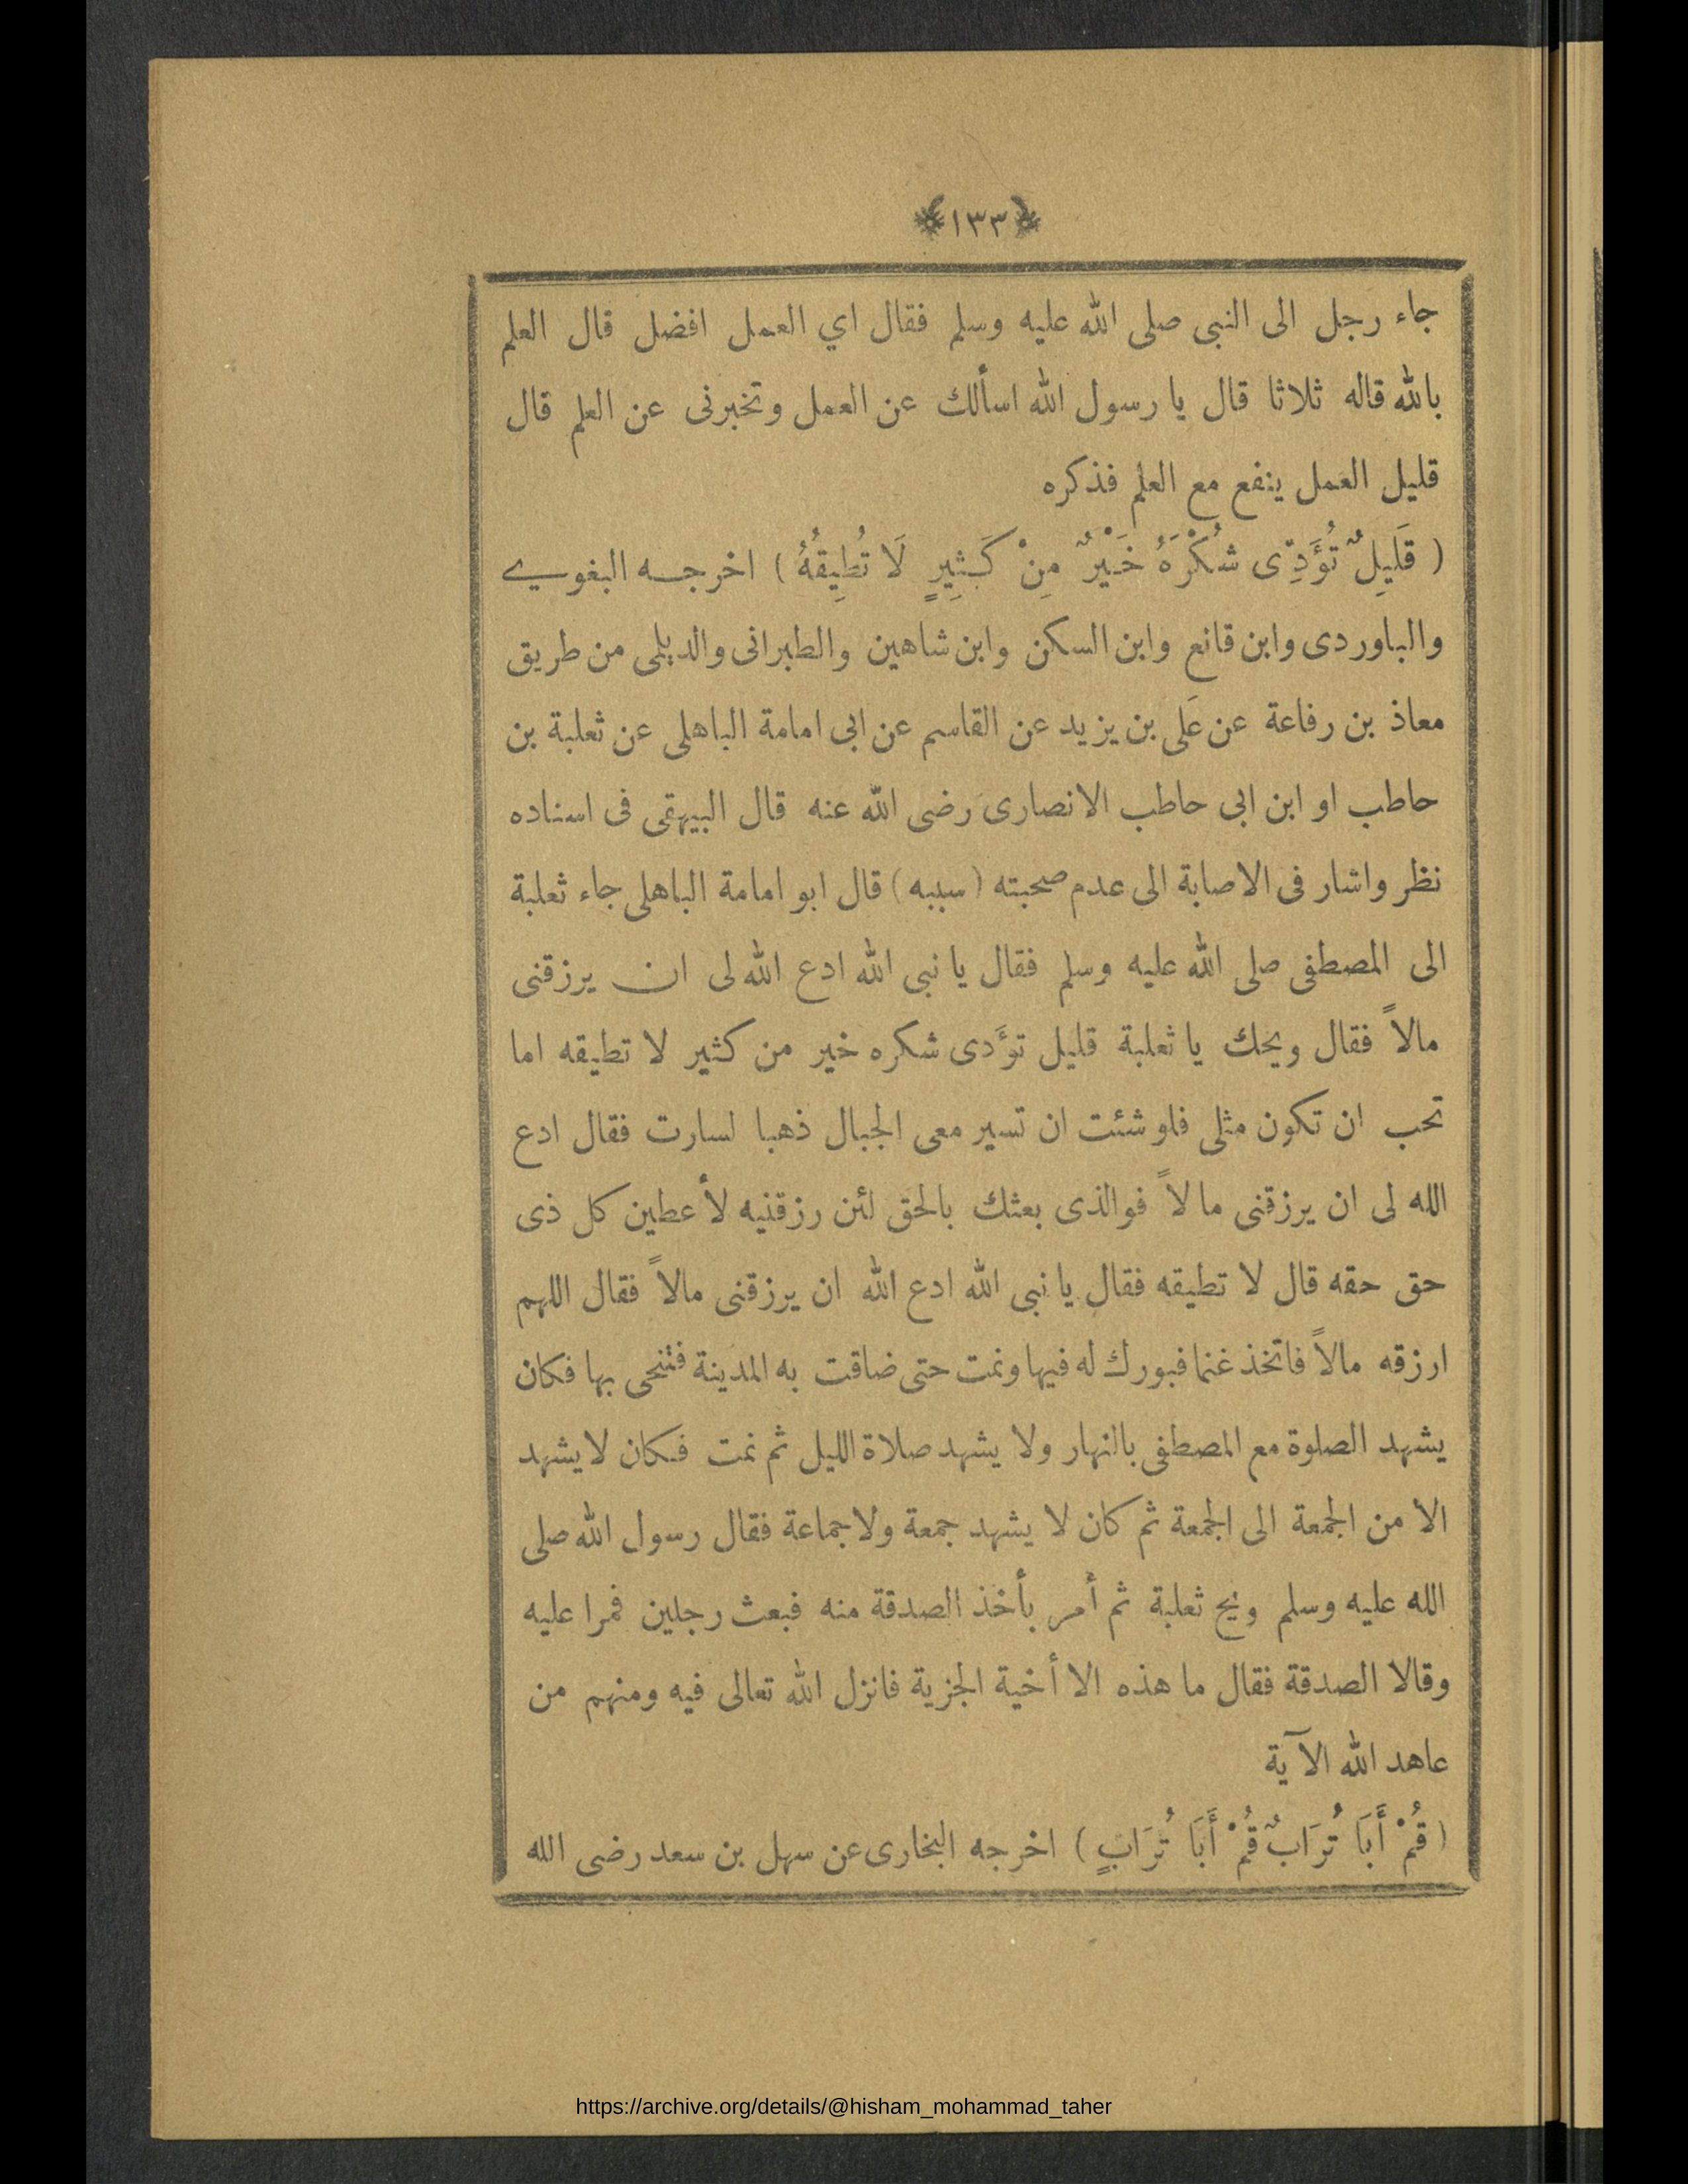 ﴿١٣٣﴾
جاء رجل الى النبى صلى الله عليه وسلم فقال اي العمل افضل قال العلم
بالله قاله ثلاثا قال يا رسول الله اسألك عن العمل وتخبرنى عن العلم قال
قليل العمل ينفع مع العلم فذكره
( قَلَيِلٌ تُؤَدِّى شُكْرَهُ خَيْرٌ مِنْ كَثِيرٍ لَا تُطِيقُهُ ) اخرجه البغوي
والباوردى وابن قانع وابن السكن وابن شاهين والطبرانى والديلمى من طريق
معاذ بن رفاعة عن عَلى بن يزيد عن القاسم عن ابى امامة الباهلى عن ثعلبة بن
حاطب او ابن ابى حاطب الانصارى رضى الله عنه قال البيهقى فى اسناده
نظر واشار فى الاصابة الى عدم صحبته ( سببه ) قال ابو امامة الباهلى جاء ثعلبة
الى المصطفى صلى الله عليه وسلم فقال يا نبى الله ادع الله لى ان يرزقنى
مالاً فقال ويحك يا ثعلبة قليل تؤَدى شكره خير من كثير لا تطيقه اما
تحب ان تكون مثلى فلو شئت ان تسير معى الجبال ذهبا لسارت فقال ادع
الله لى ان يرزقنى مالاً فوالذى بعثك بالحق لئن رزقنيه لأعطين كل ذى
حق حقه قال لا تطيقه فقال يا نبى الله ادع الله ان يرزقنى مالاً فقال اللهم
ارزقه مالاً فاتخذ غنما فبورك له فيها ونمت حتى ضاقت به المدينة فتنحى بها فكان
يشهد الصلوة مع المصطفى بالنهار ولا يشهد صلاة الليل ثم نمت فكان لا يشهد
الا من الجمعة الى الجمعة ثم كان لا يشهد جمعة ولا جماعة فقال رسول الله صلى
الله عليه وسلم ويح ثعلبة ثم أمر بأخذ الصدقة منه فبعث رجلين فمرا عليه
وقالا الصدقة فقال ما هذه الا أخية الجزية فانزل الله تعالى فيه ومنهم من
عاهد الله الآية
( قُمْ أَبَا تُرَابٌ قُمْ أَبَا تُرَابٍ ) اخرجه البخارى عن سهل بن سعد رضى الله
https://archive.org/details/@hisham_mohammad_taher